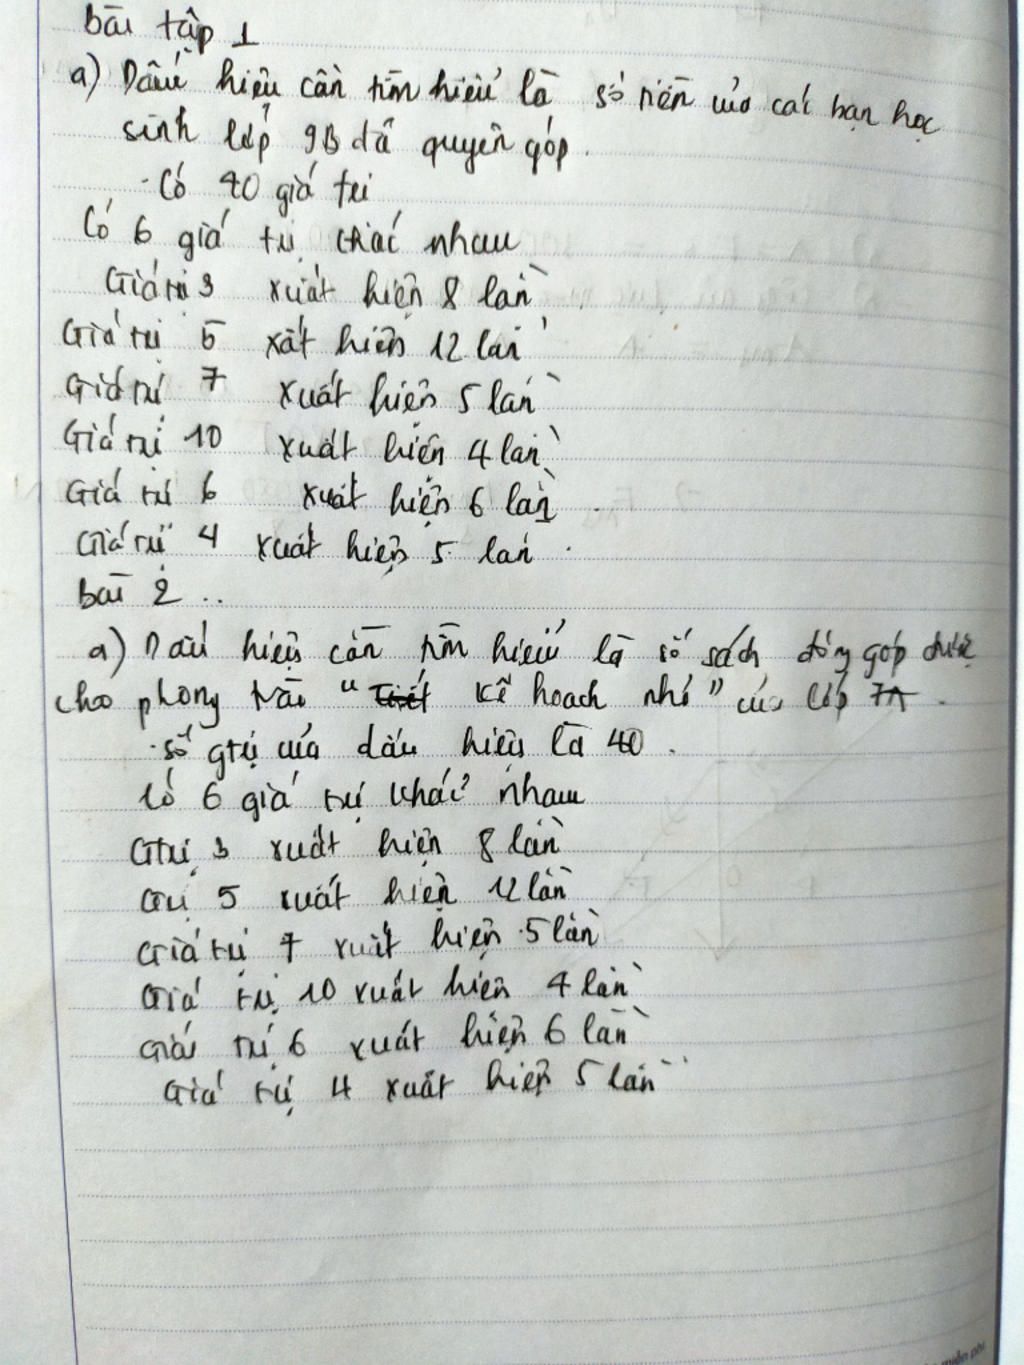 Bài tập 1
a) Dấu hiệu cần tìm hiểu là số tiền của các bạn học
sinh lớp 9B đã quyên góp.
Có 40 giá trị
Có 6 giá trị khác nhau
Giá trị 3 xuất hiện 8 lần
Giá trị 5 xất hiện 12 lần
Giá trị 7 xuất hiện 5 lần
Giá trị 10 xuất hiện 4 lần
Giá trị 6 xuất hiện 6 lần
Giá trị 4 xuất hiện 5 lần.
Bài 2..
a) Dấu hiệu cần tìm hiểu là số sách đóng góp
cho phong trào " kế hoạch nhỏ" của lớp 7A.
số gtrị của dấu hiệu là 40.
Có 6 giá trị khác nhau
Gtrị 3 xuất hiện 8 lần
Gtrị 5 xuất hiện 12 lần
Giá trị 7 xuất hiện 5 lần
Giá trị 10 xuất hiện 4 lần
Giá trị 6 xuất hiện 6 lần
Giá trị 4 xuất hiện 5 lần